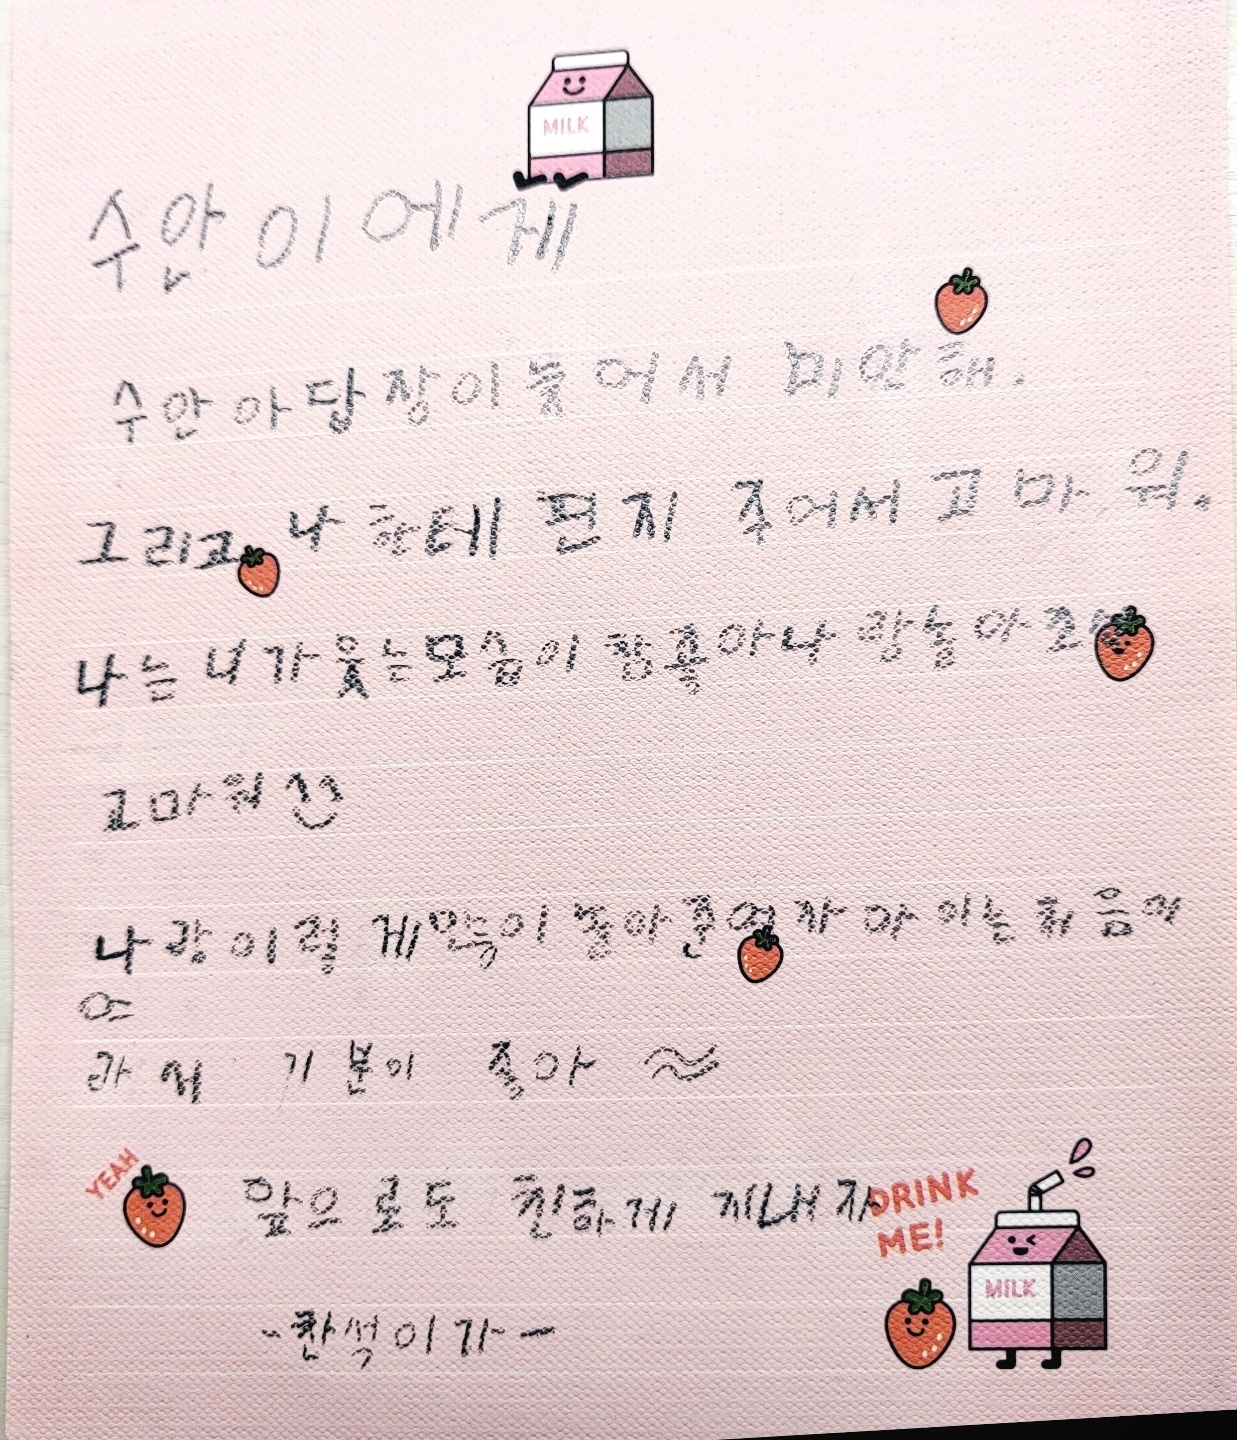 MILK
수안이에게
수안아 답장이 늦어서 미안해.
그리고 나한테 편지 주어서 고마워.
나는 너가 웃는모습이 참좋아 나랑놀아조서
고마워
나랑이렇게만득이 놀아준여자아이는 처음이
야
라서 기분이 좋아
YEAH
앞으로도 친하게 지내자
DRINK
ME!
MILK
-찬석이가-